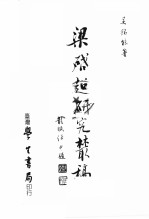 吳銘能著
梁啓超研究叢稿
臺灣學生書局印行